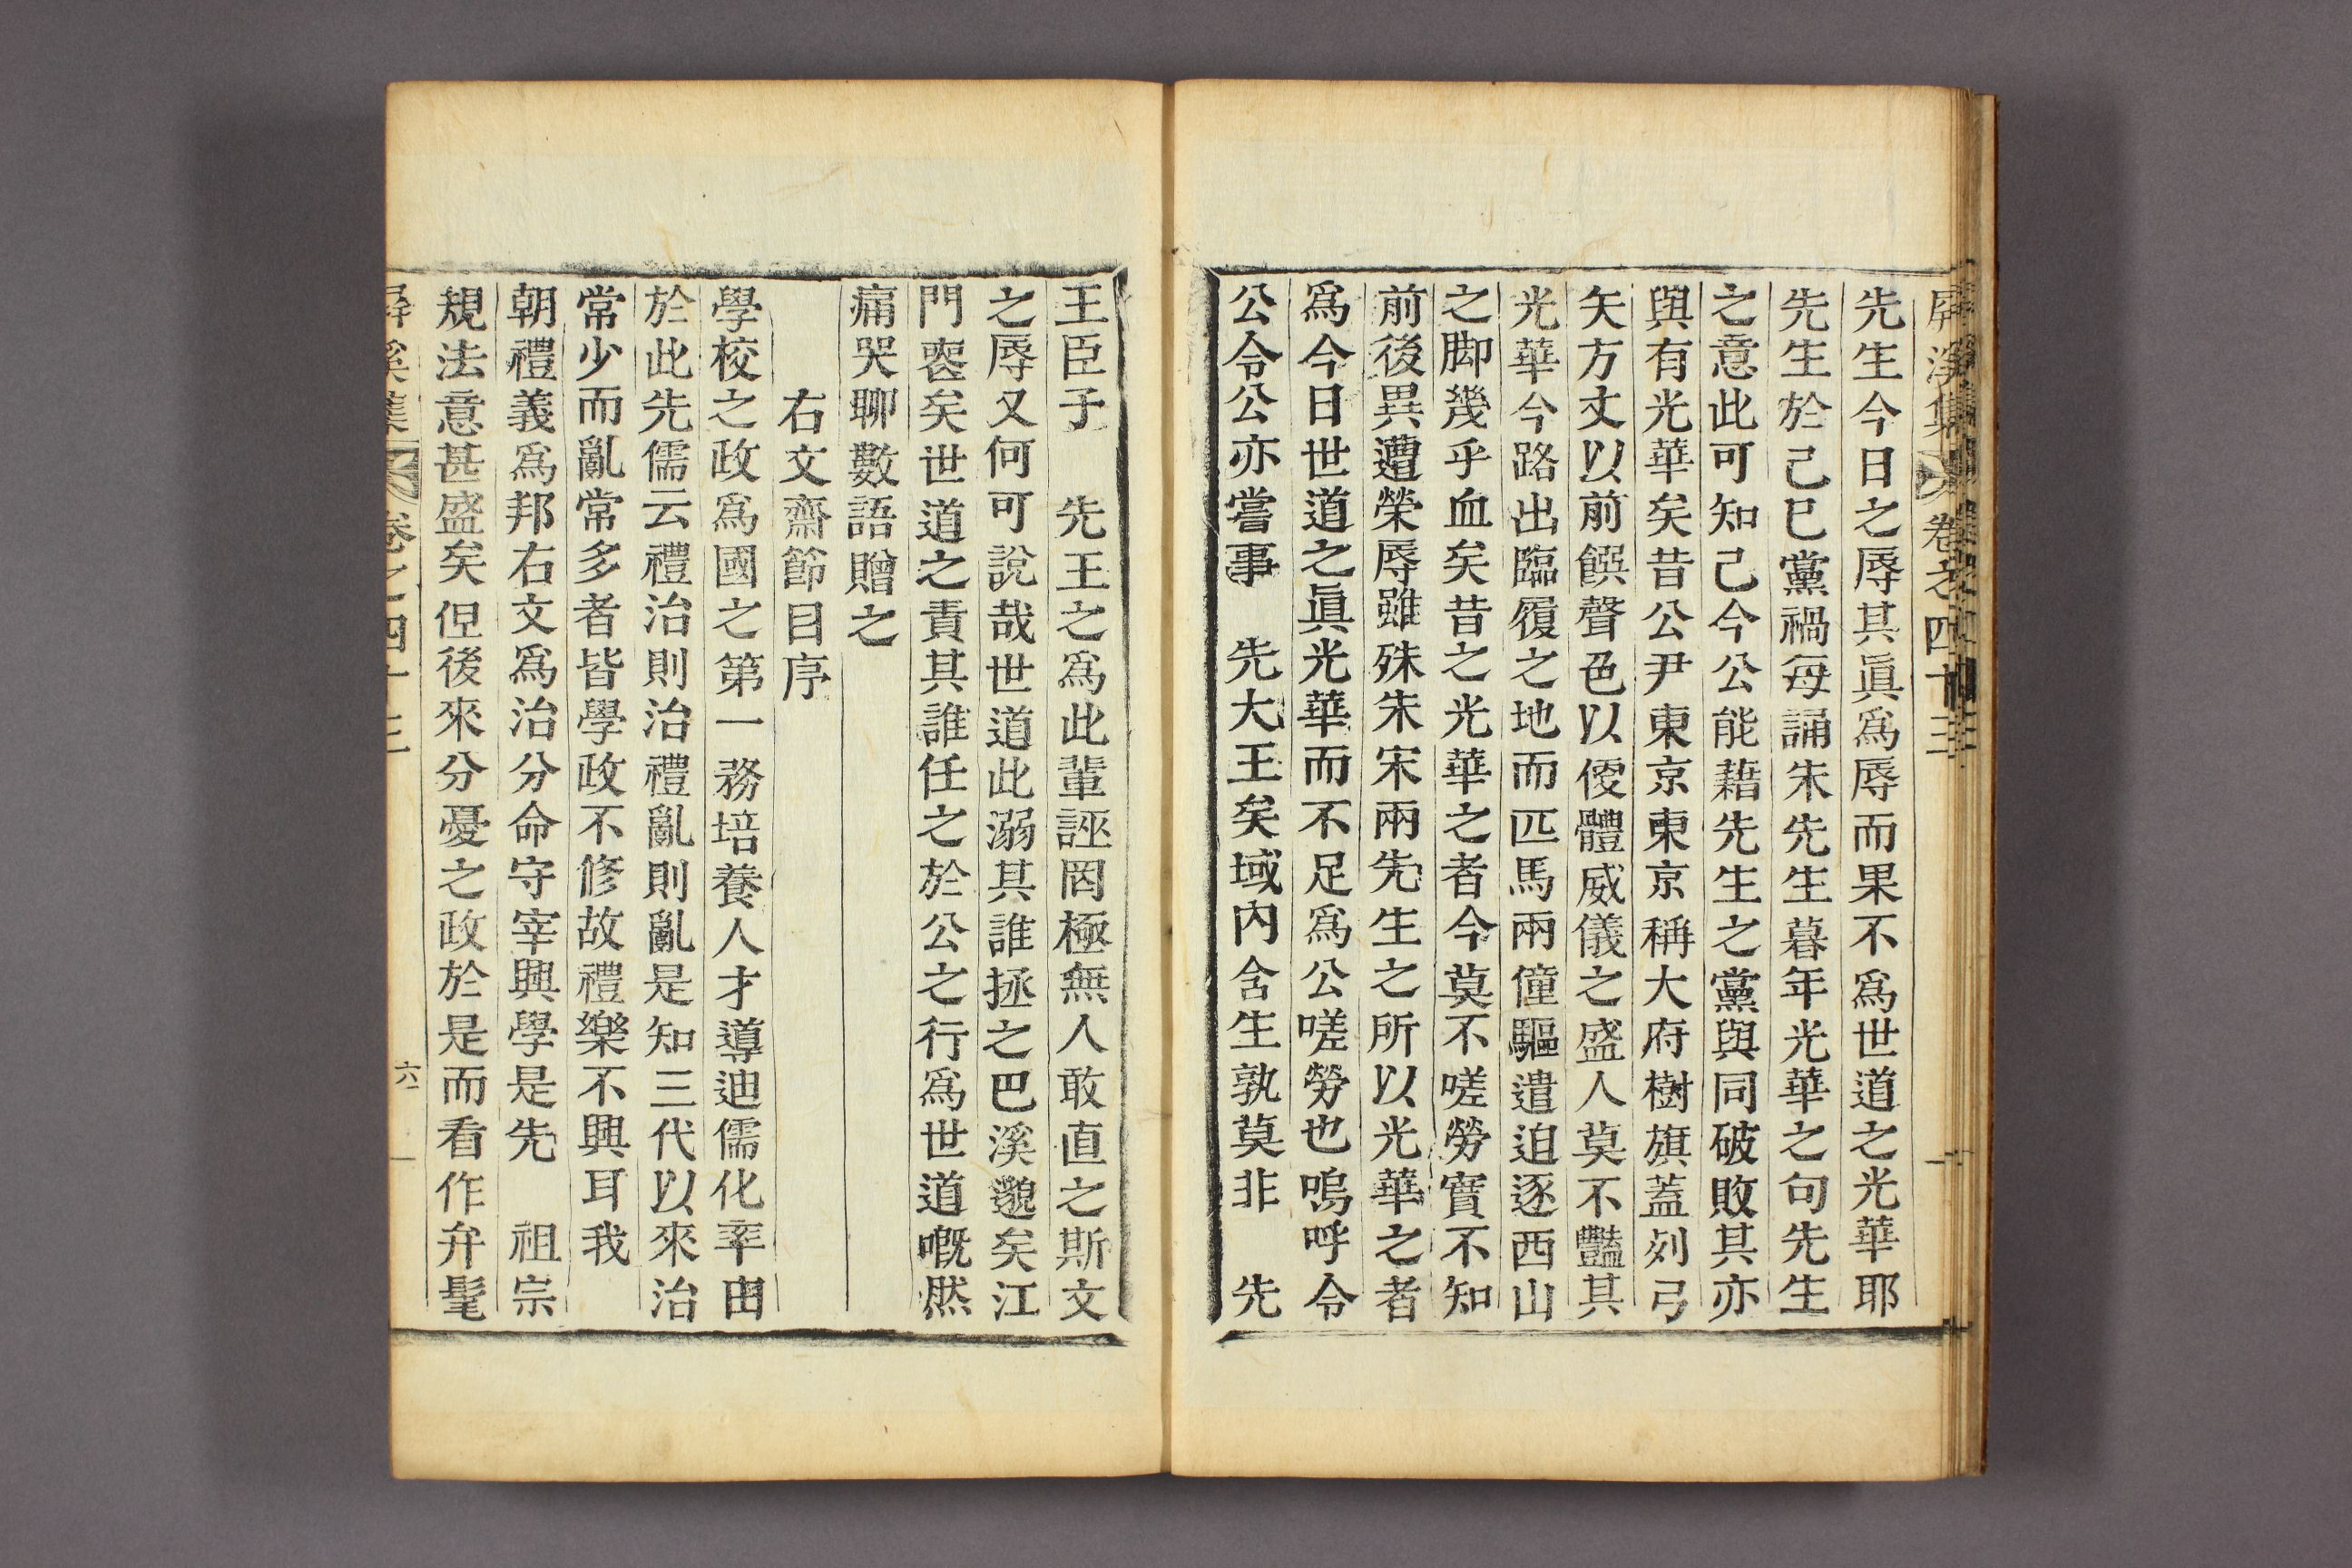 屛溪集 卷之四十三
先生今日之辱其眞爲辱而果不爲世道之光華耶
先生於己巳黨禍每誦朱先生暮年光華之句先生
之意此可知己今公能藉先生之黨與同破敗其亦
與有光華矣昔公尹東京東京稱大府樹旗蓋列弓
矢方丈以前饌聲色以㑋體威儀之盛人莫不豔其
光華今路出臨履之地而匹馬兩僮驅遣迫逐西山
之脚幾乎血矣昔之光華之者今莫不嗟勞實不知
前後異遭榮辱雖殊朱宋兩先生之所以光華之者
爲今日世道之眞光華而不足爲公嗟勞也嗚呼令
公令公亦嘗事 先大王矣域內含生孰莫非 先
王臣子 先王之爲此輩誣罔極無人敢直之斯文
之辱又何可說哉世道此溺其誰拯之巴溪邈矣江
門喪矣世道之責其誰任之於公之行爲世道嘅然
痛哭聊數語贈之
右文齋節目序
學校之政爲國之第一務培養人才導迪儒化率由
於此先儒云禮治則治禮亂則亂是知三代以來治
常少而亂常多者皆學政不修故禮樂不興耳我
朝禮義爲邦右文爲治分命守宰興學是先 祖宗
規法意甚盛矣但後來分憂之政於是而看作弁髦
屛溪集 卷之四十三 六